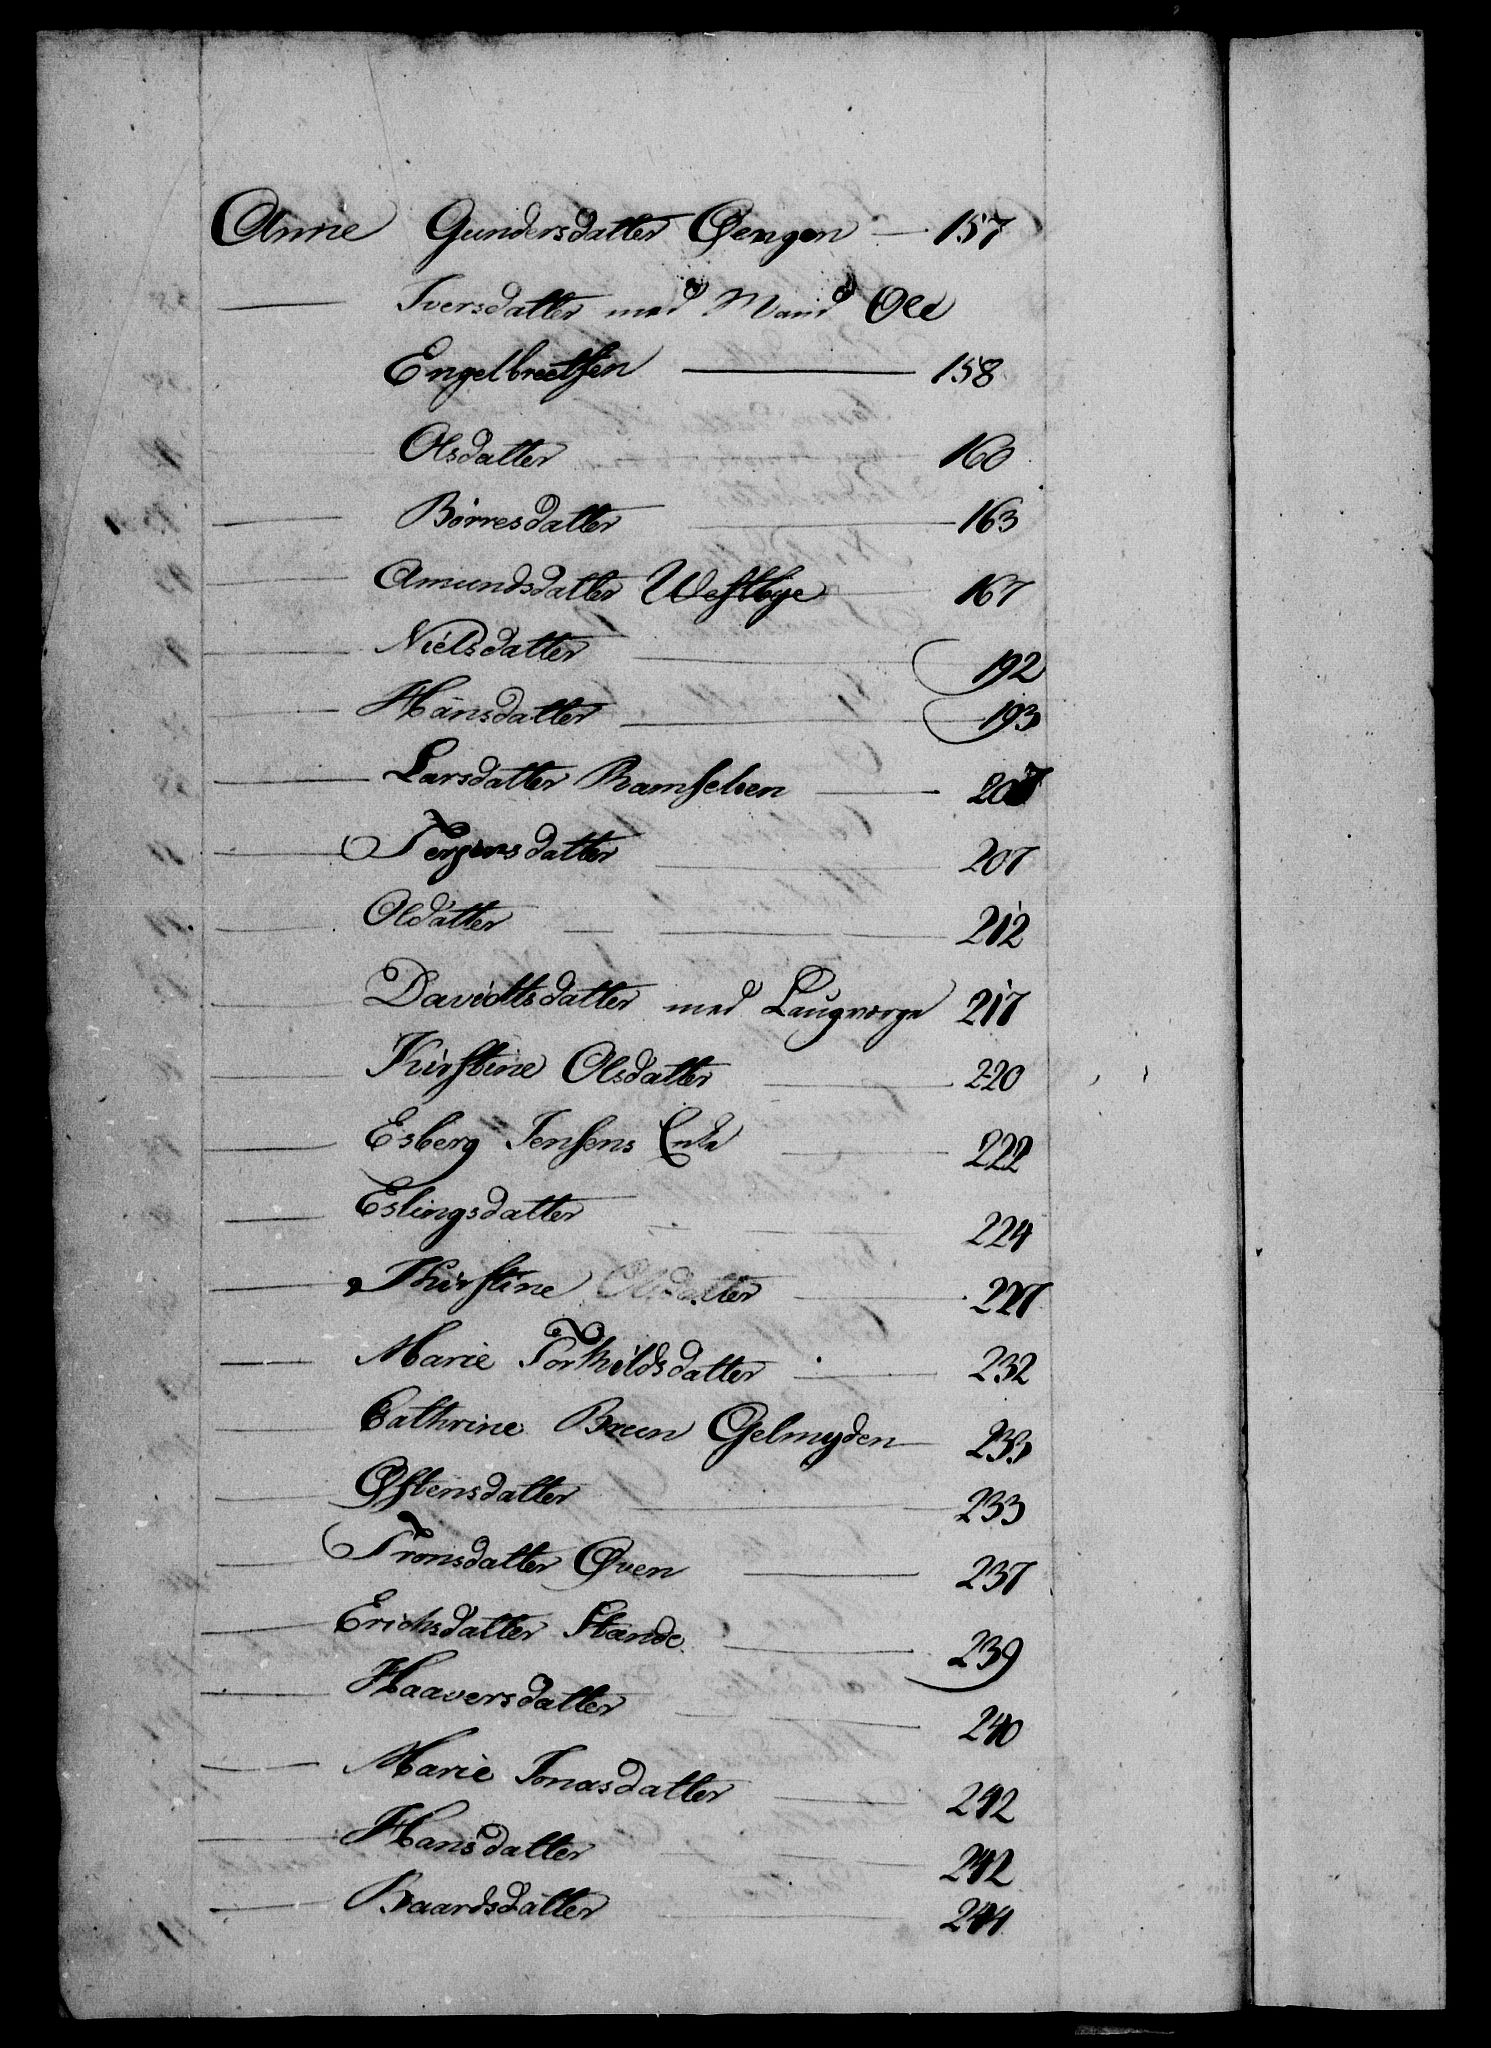 Anne Gundersdatter Øengen — 157
— Iversdatter med Mand Ole
Engelbrectsen — 158
— Olsdatter 160
— Börresdatter — 163
— Amundsdatter Westbye — 167
— Nielsdatter — 192
— Hansdatter — 193
— Larsdatter Ramselven — 207
— Tergersdatter — 207
— Oldatter — 212
— Davidtsdatter med Laugværge 217
— Kirstine Olsdatter — 220
— Esberg Jensens Enke — 222
— Eslingsdatter — 224
— Kirstine Olsdatter — 227
— Marie Torkildsdatter — 232
— Cathrine Bruun Gelmyden — 233
— Østensdatter — 233
— Tronsdatter Øven — 237
— Erichsdatter Stande — 239
— Haaversdatter — 240
— Marie Jonasdatter — 242
— Hansdatter — 242
— Baardsdatter — 244